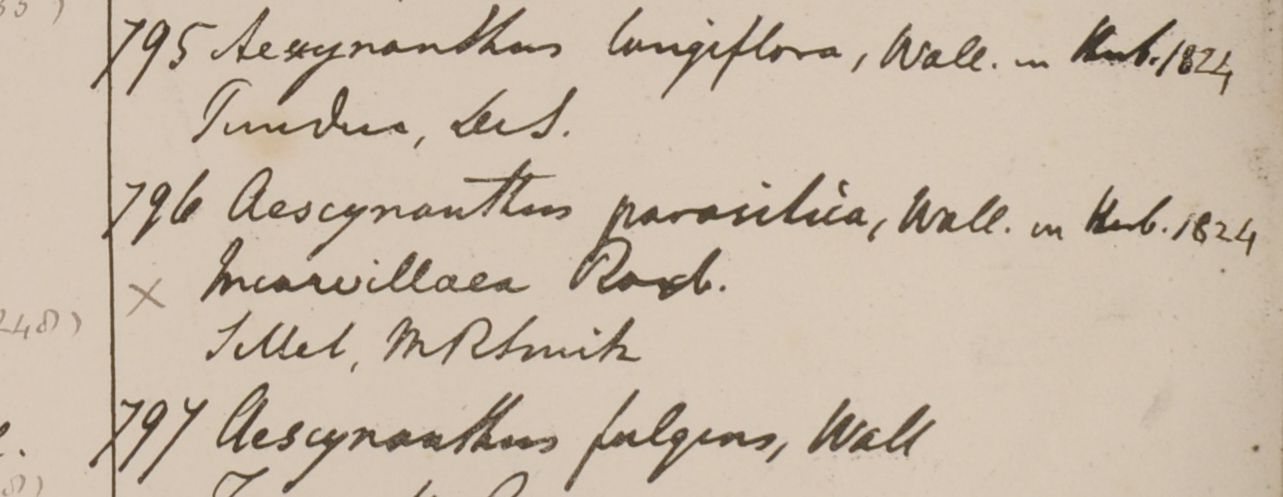 795 Aescynanthus longiflora, Wall. in Herb. 1824
Tundua, DeS.
796 Aescynanthus parasitica, Wall. in Herb. 1824
× Incarvillaea Roxb.
Sillet, MRSmith
248)
797 Aescynanthus fulgens, Wall